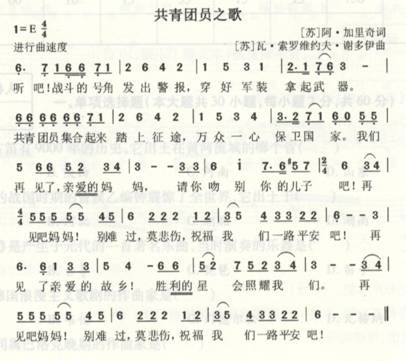 共青团员之歌
1=E 4/4
[苏]阿·加里奇词
进行曲速度
[苏]瓦·索罗维约夫·谢多伊曲
6. 7166 71 | 2 6 4 2 | 1 5 3 1 | 2.1 763 - |
听 吧!战斗的 号角 发 出 警 报， 穿 好 军 装 拿 起武 器。
666 6 6 671 | 2 6 4 2 | 1 5 3 4 | 3.2 71 60 55 |
共青团员集合起来 踏 上 征 途， 万 众 一 心 保 卫国 家。我们
5 66 52 34 | 3 - - 33 | 6 i 7.6 57 | 2 6 34 |
再 见了,亲爱的妈 妈， 请你 吻 别 你的儿子 吧！再
4/4 555 55 45 | 6 222 12 | 35 433 22 | 6 - - 3 |
见吧妈妈！ 别难 过，莫悲伤，祝福 我 们一路平安 吧！ 再
6. 61 33 | 5 4 - 66 | 52 7 5234 | 3 - - 34 |
见 了亲爱的 故 乡！ 胜利的星 会照耀我 们。 再
555 55 45 | 6 222 12 | 35 433 22 | 6 - - |
见吧妈妈！ 别难 过，莫悲伤，祝福我 们一路平安 吧！